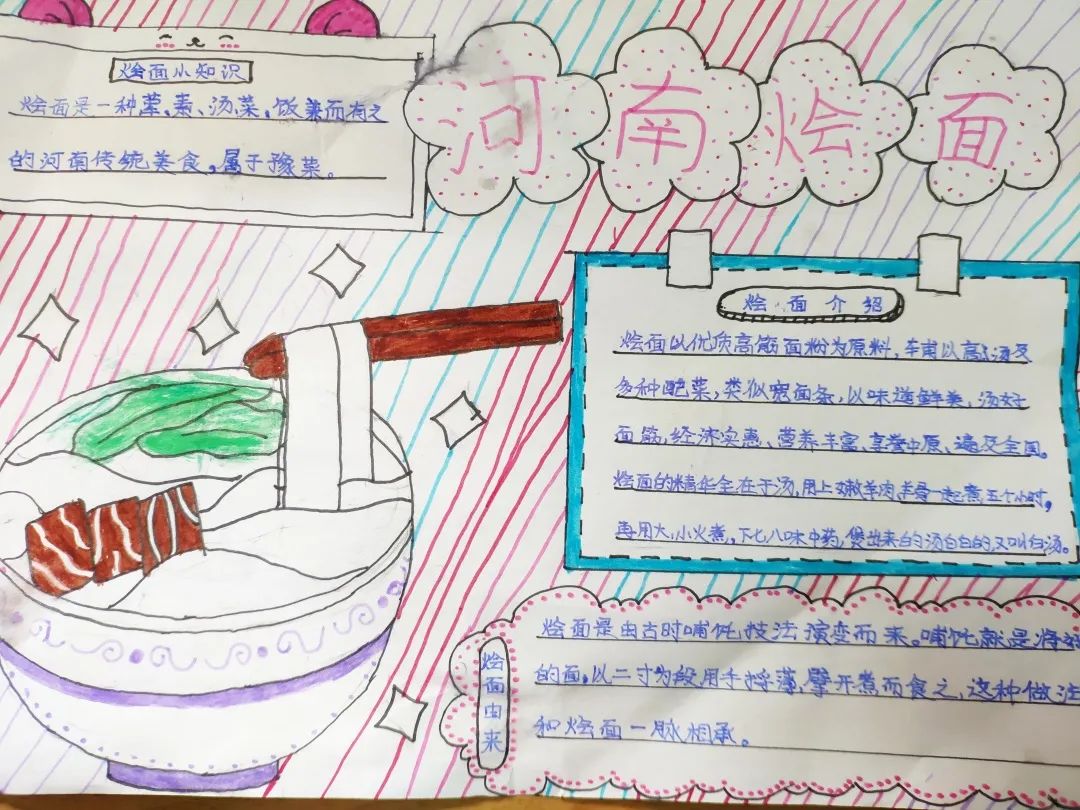 烩面小知识
烩面是一种荤、素、汤、菜、饭兼而有之
的河南传统美食。属于豫菜。
河南烩面
烩面介绍
烩面以优质高筋面粉为原料，辅以高汤及
多种配菜，类似宽面条，以味道鲜美，汤好
面筋，经济实惠、营养丰富、享誉中原、遍及全国。
烩面的精华全在于汤，用上嫩羊肉，羊骨一起煮五个小时，
再用大、小火煮，下七八味中药，煲出来的汤白白的，又叫白汤。
烩面由来
烩面是由古时哺饦技法演变而来。哺饦就是将
的面，以二寸为段用手捋薄，擘开煮而食之，这种做法
和烩面一脉相承。